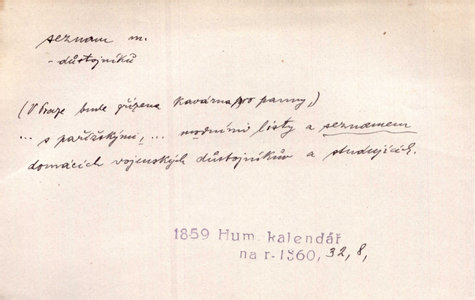 seznam m.
- důstojníků
(V Praze bude zřízena kavárna pro panny,)
... s pařížskými, ... modními listy a seznamem
domácích vojenských důstojníkův a studujících.
1859 Hum. kalendář
na r. 1860, 32, 8,